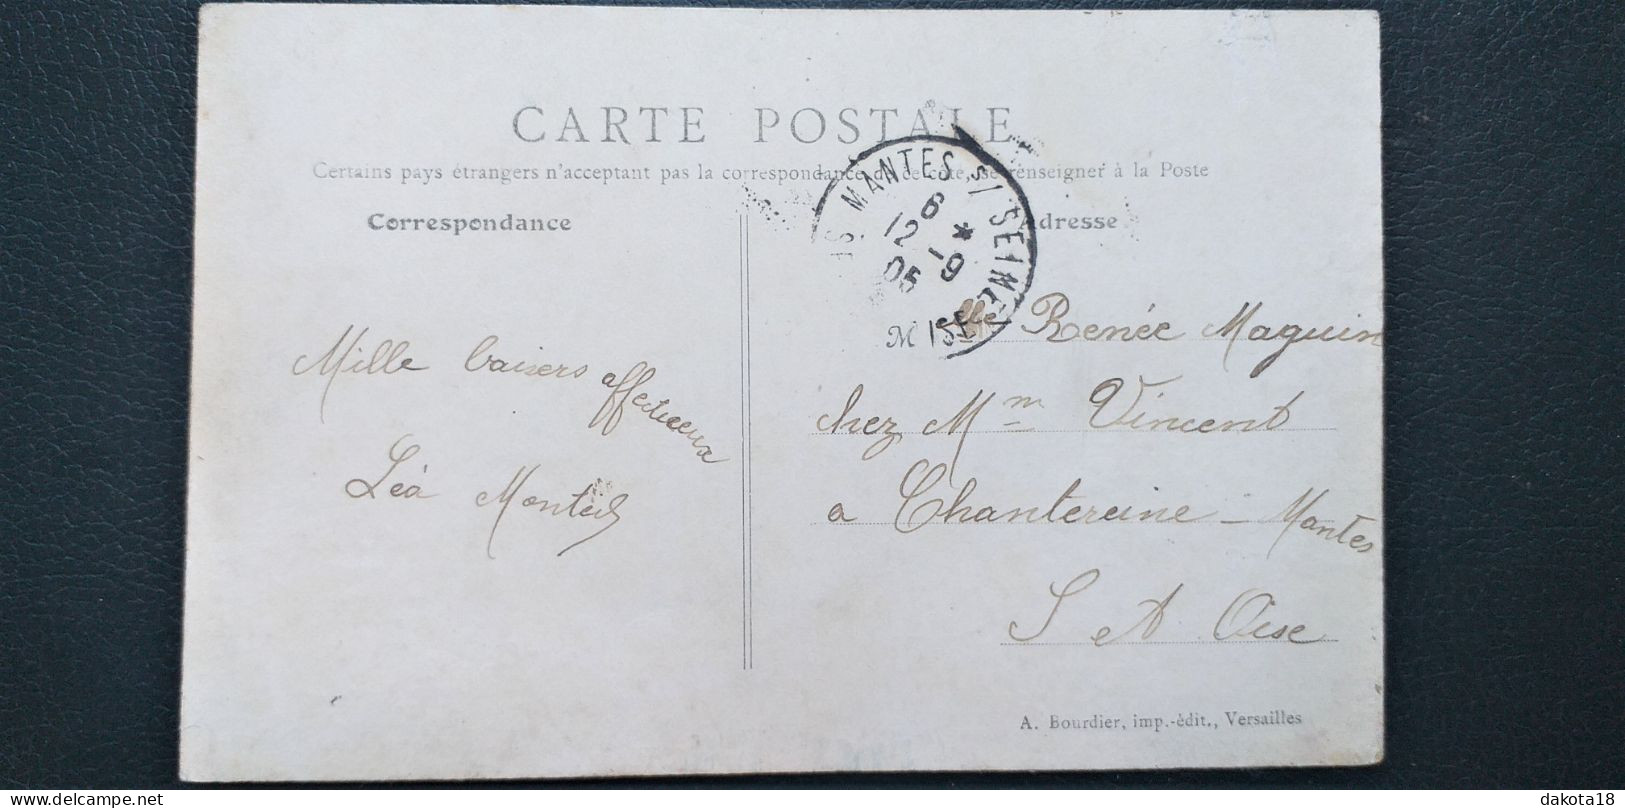 CARTE POSTALE
Certains pays étrangers n'acceptant pas la correspondance de ce côté, se renseigner à la Poste
Correspondance
Adresse
MANTES S/ SEINE
6 *
12 -9
05
S. & OISE
Mille baisers affectueux
Léa Monteil
Mlle Renée Maguin
chez Mme Vincent
a Chantereine - Mantes
S et Oise
A. Bourdier, imp.-édit., Versailles
dakota18